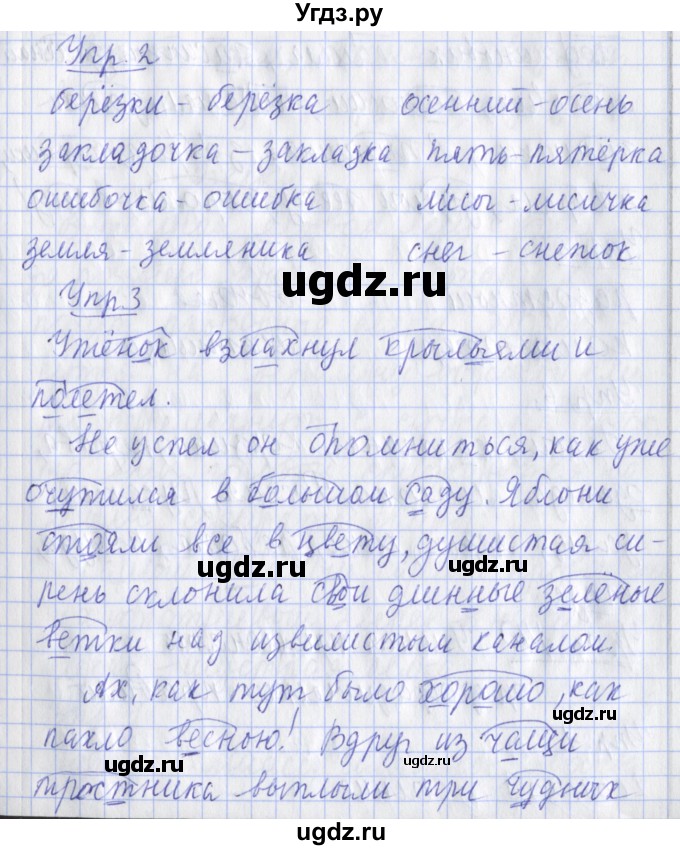 Угдз.ру
Упр. 2
берёзки - берёзка осенний - осень
закладочка - закладка пять - пятёрка
ошибочка - ошибка лисы - лисичка
земля - земляника снег - снежок
ugdz.ru
Упр 3
Утёнок взмахнул крыльями и
полетел.
Не успел он опомниться, как уже
очутился в большом саду. Яблони
ugdz.ru
стояли все в цвету, душистая си-
ugdz.ru
рень склонила свои длинные зелёные
ветки над извилистым каналом.
Ах, как тут было хорошо, как
ugdz.ru
пахло весною! Вдруг из чащи
ugdz.ru ugdz.ru
тростника выплыли три чудных
ugdz.ru